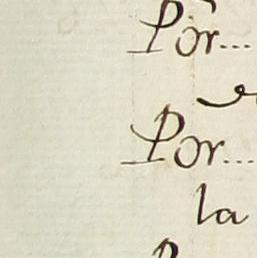 Por...
Por...
la